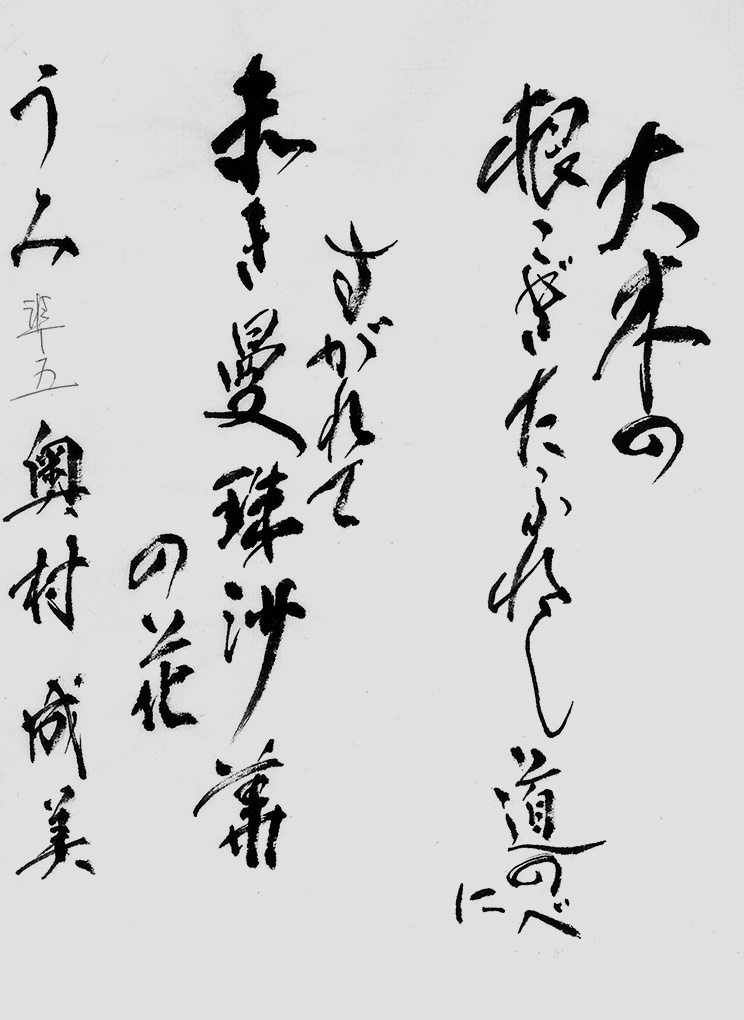 大木の
根こぎたふれし道のべ
に
すがれて
赤き曼珠沙華
の花
うみ 準五 奥村 成美